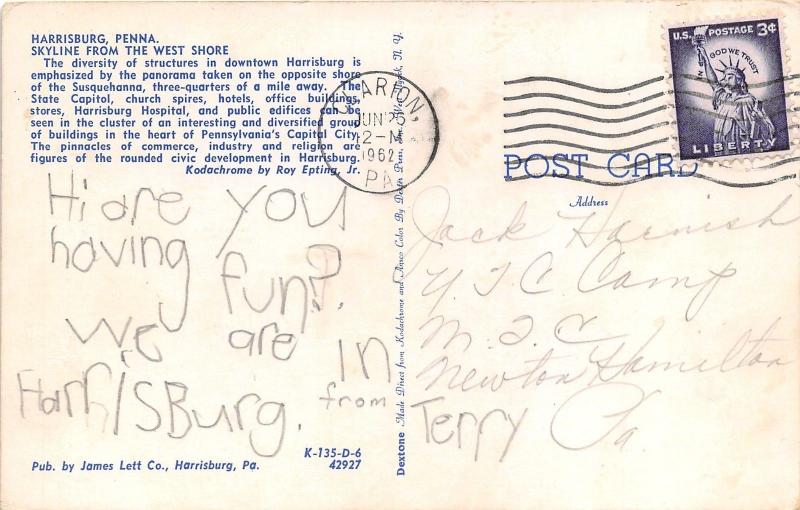 HARRISBURG, PENNA.
SKYLINE FROM THE WEST SHORE
The diversity of structures in downtown Harrisburg is
emphasized by the panorama taken on the opposite shore
of the Susquehanna, three-quarters of a mile away. The
State Capitol, church spires, hotels, office buildings,
stores, Harrisburg Hospital, and public edifices can be
seen in the cluster of an interesting and diversified group
of buildings in the heart of Pennsylvania's Capital City.
The pinnacles of commerce, industry and religion are
figures of the rounded civic development in Harrisburg.
Kodachrome by Roy Epting, Jr.
Hi are you
having fun?.
We are in
HarrisBurg. from Terry
K-135-D-6
42927
Pub. by James Lett Co., Harrisburg, Pa.
Dextone Made Direct from Kodachrome and Ansco Color By Dexter Press, Inc. West Nyack, N. Y.
JUN 25
1962
PA
U.S. POSTAGE 3¢
IN GOD WE TRUST
LIBERTY
POST CARD
Address
Jack Harnish
Camp
Newton Hamilton
Pa.